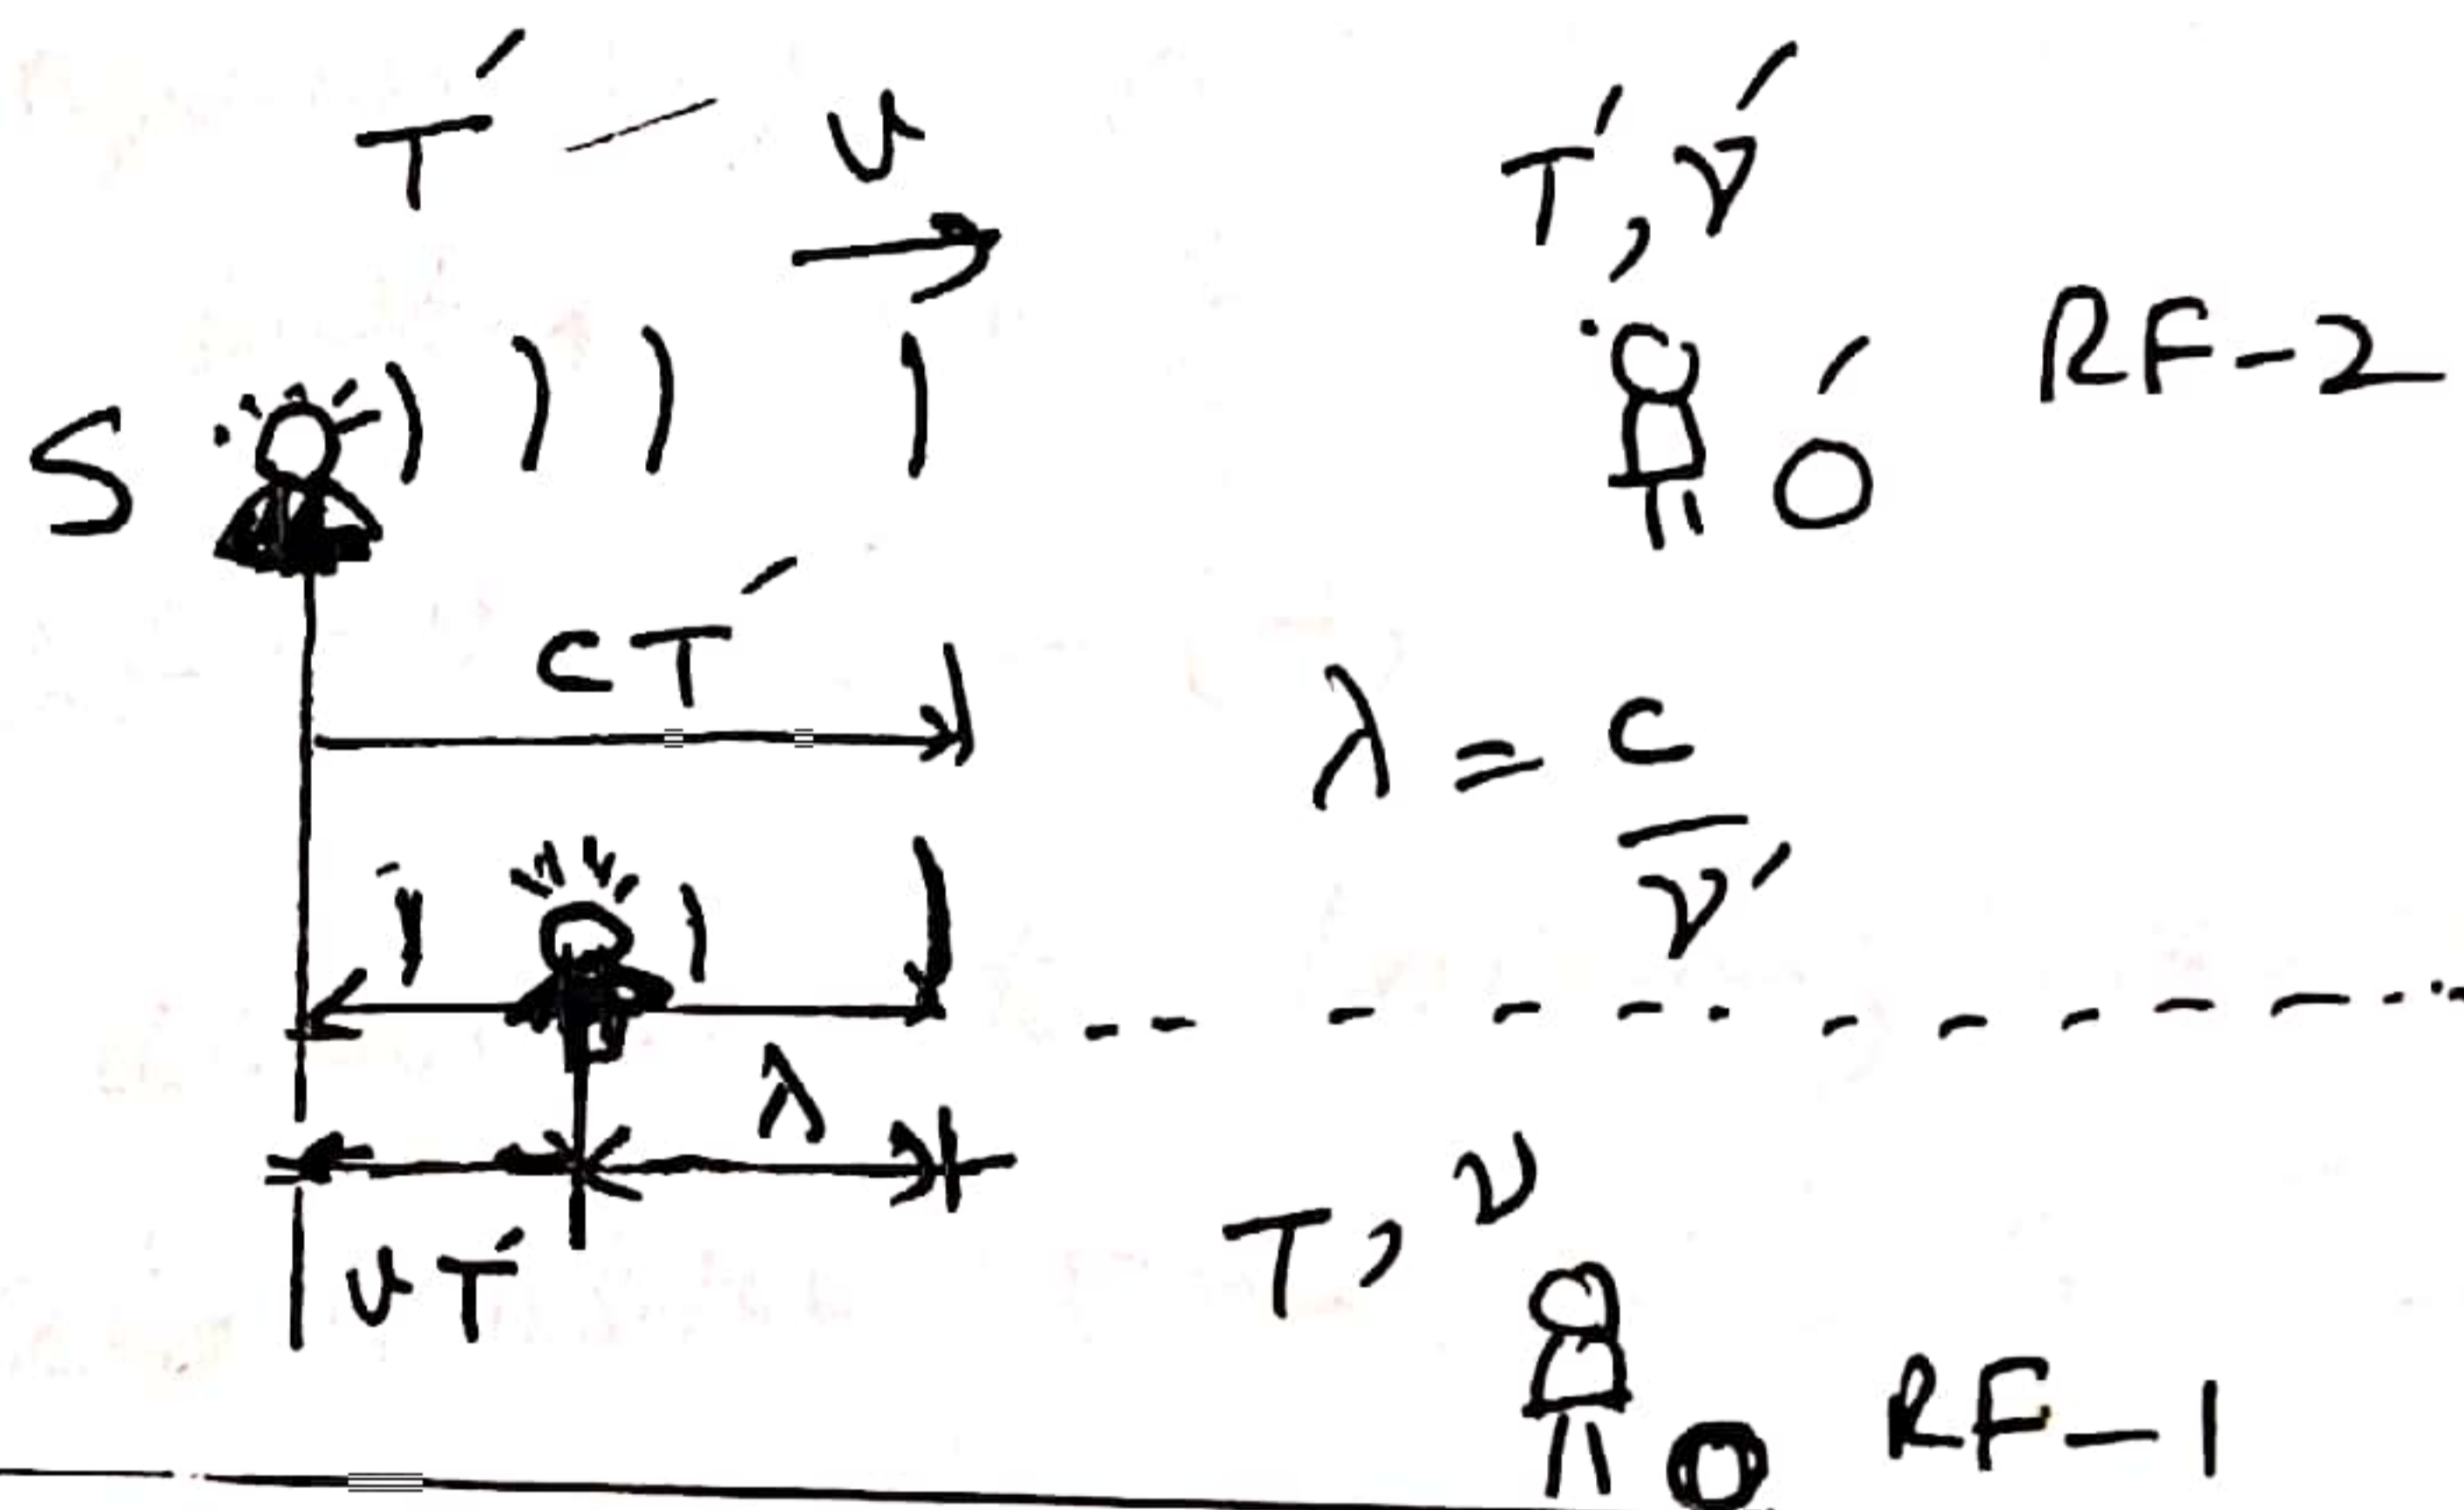 T′ v
T′, ν′
S
O′ RF-2
cT′
λ = c/ν′
λ
T, ν
vT′
O RF-1